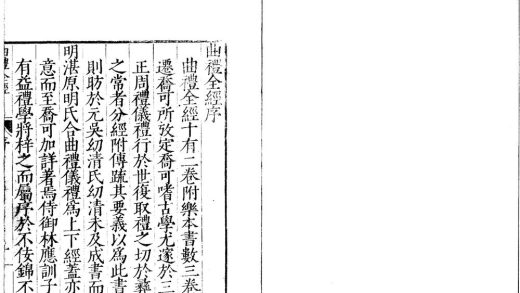 曲禮全經序
曲禮全經十有二卷附樂本書數三卷
遷喬可所攷定喬可嗜古學尤邃於三
正周禮儀禮行於世復取禮之切於彝
之常者分經附傳疏其要義以為此書
則昉於元吳幼清氏幼清未及成書而
明湛原明氏合曲禮儀禮為上下經蓋亦
意而至喬可加詳者焉侍御林應訓子
有益禮學將梓之而屬序於不佞錦不
曲禮全經
序